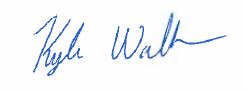 Kyle Walk